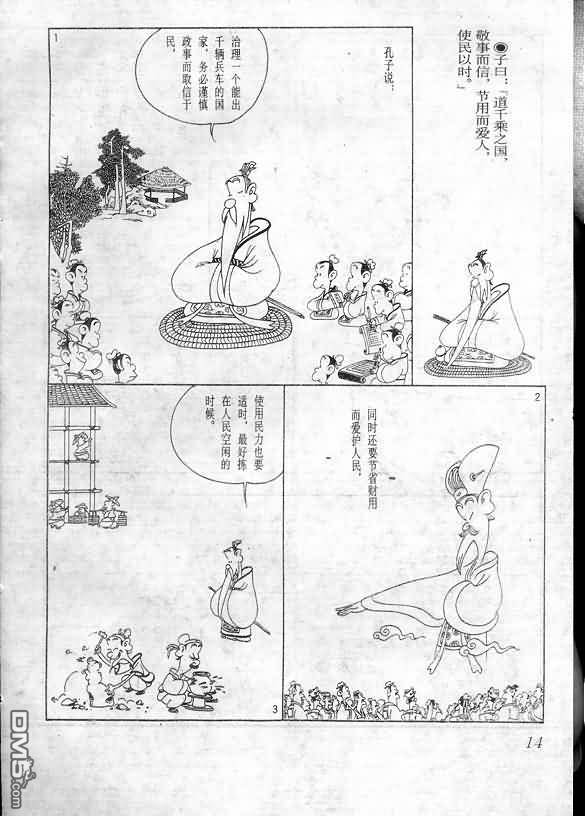 ◉子曰：『道千乘之国，
敬事而信，节用而爱人，
使民以时。』
1
孔子说：
治理一个能出
千辆兵车的国
家，务必谨慎
政事而取信于
民，
2
同时还要节省财用
而爱护人民，
使用民力也要
适时，最好拣
在人民空闲的
时候。
3
14
DM5.com